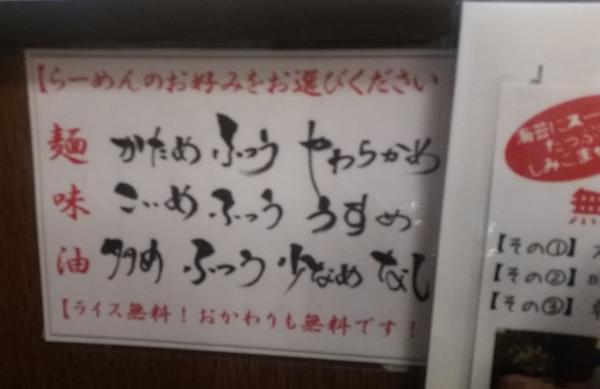 【らーめんのお好みをお選びください
麺 かため ふつう やわらかめ
味 こいめ ふつう うすめ
油 多め ふつう 少なめ なし
【ライス無料！おかわりも無料です！
』
海苔にスー
たっぷ
しみこませ
無
【その①】
【その②】
【その③】